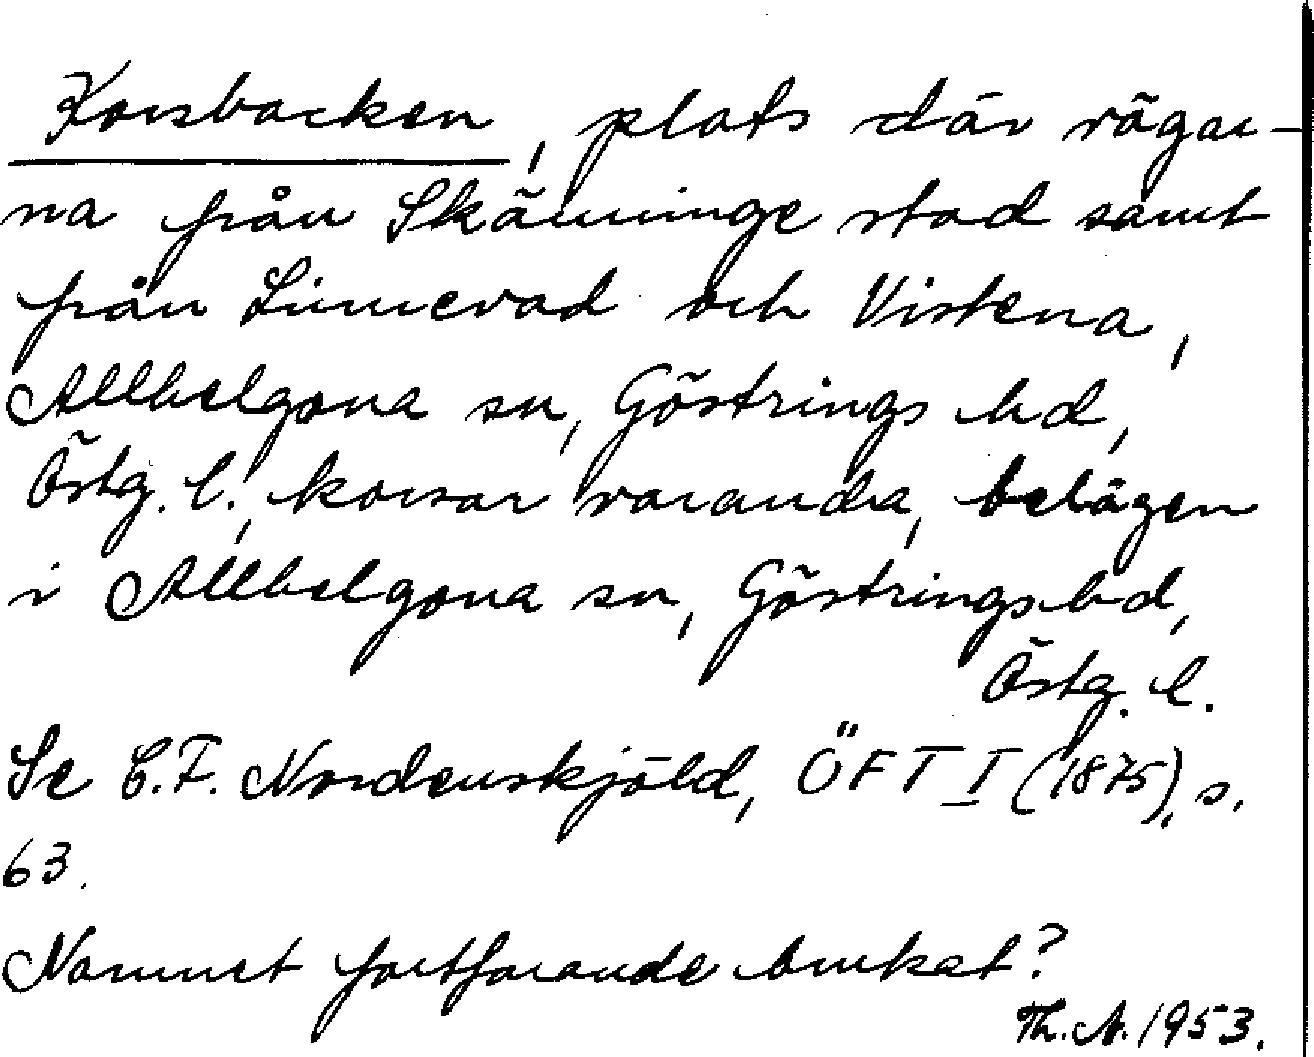 Korsbacken, plats där vägar-
na från Skänninge stad samt
från Linnevad och Vistena,
Allhelgona sn, Göstrings hd,
Östg. l., korsar varandra, belägen
i Allhelgona sn, Göstrings hd,
Östg. l.
Se C.F. Nordenskjöld, ÖFT I (1875), s.
63.
Namnet fortfarande brukat?
Th. N. 1953.